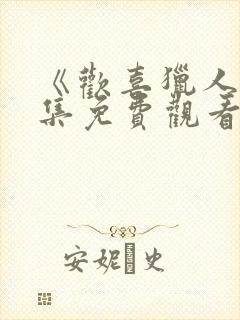 《歡喜獵人
集免費觀看
安妮•史